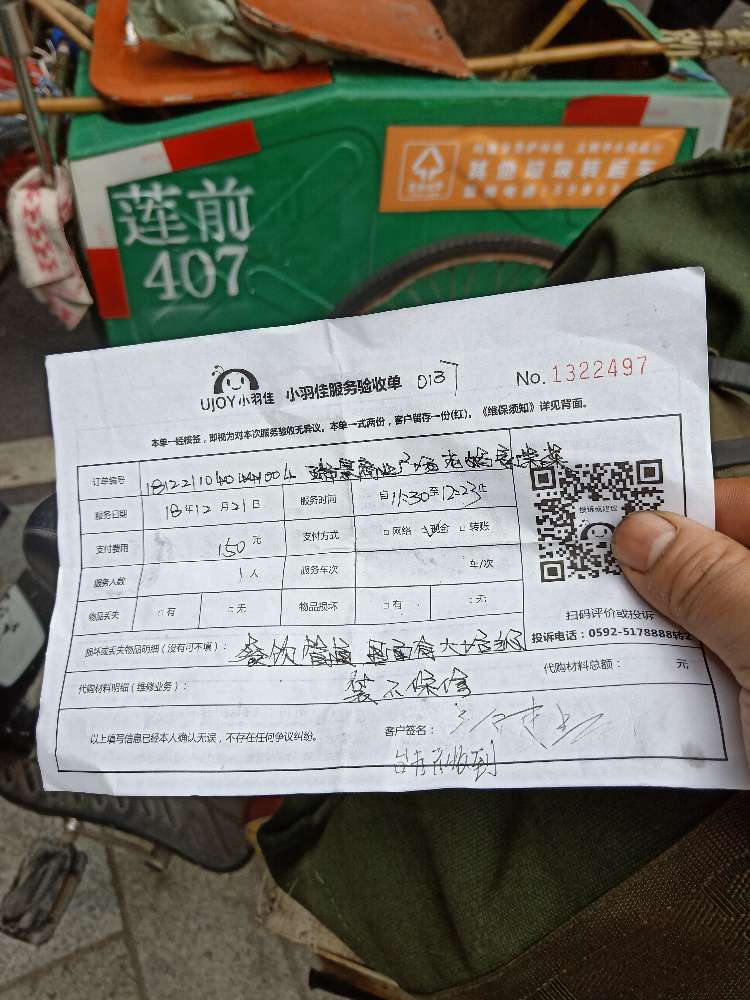 莲前
407
其他垃圾转运车
UJOY小羽佳 小羽佳服务验收单 013 No. 1322497
本单一经核签，即视为对本次服务验收无异议。本单一式两份，客户留存一份(红)。《维保须知》详见背面。
订单编号
服务日期 18年12月21日 服务时间 自11:30至12:23止
支付费用 150元 支付方式 □网络 现金 □转账
服务人数 1人 服务车次 车/次
物品丢失 □有 □无 物品损坏 □有 □无
投诉或建议
扫码评价或投诉
投诉电话：0592-5178888转2
损坏或丢失物品明细（没有可不填）： 餐饮管道里面有大
代购材料明细（维修业务）： 不保修 代购材料总额： 元
以上填写信息已经本人确认无误，不存在任何争议纠纷。 客户签名：
收到